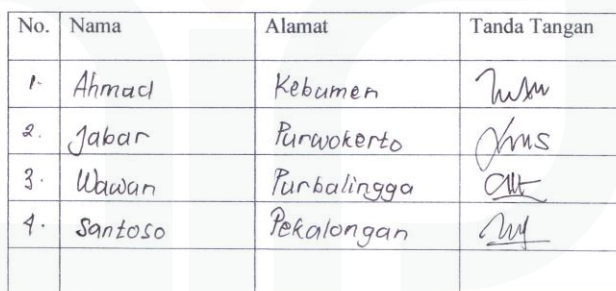 No. Nama Alamat Tanda Tangan
1. Ahmad Kebumen
2. Jabar Purwokerto
3. Wawan Purbalingga
4. Santoso Pekalongan